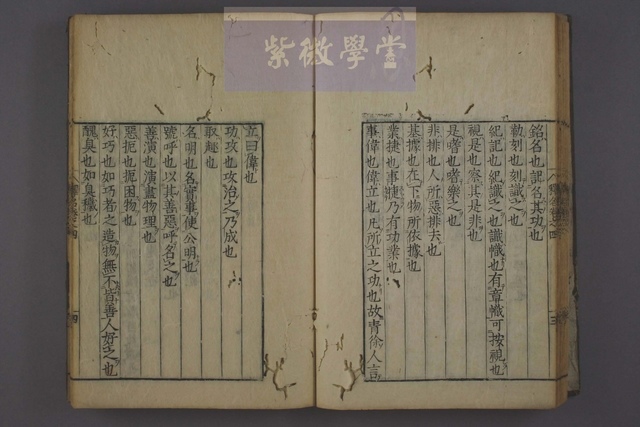 紫微學堂
銘名也記名其功也
勒刻也刻識之也
紀記也紀識之也識幟也有章幟可按視也
視是也察其是非也
是嗜也嗜樂之也
非排也人所惡排去也
基據也在下物所依據也
業捷也事捷乃有功業也
事偉也偉立也凡所立之功也故青徐人言
立曰偉也
功攻也攻治之乃成也
取趣也
名明也名實事使分明也
號呼也以其善惡呼名之也
善演也演盡物理也
惡扼也扼困物也
好巧也如巧者之造物無不皆善人好之也
醜臭也如臭穢也